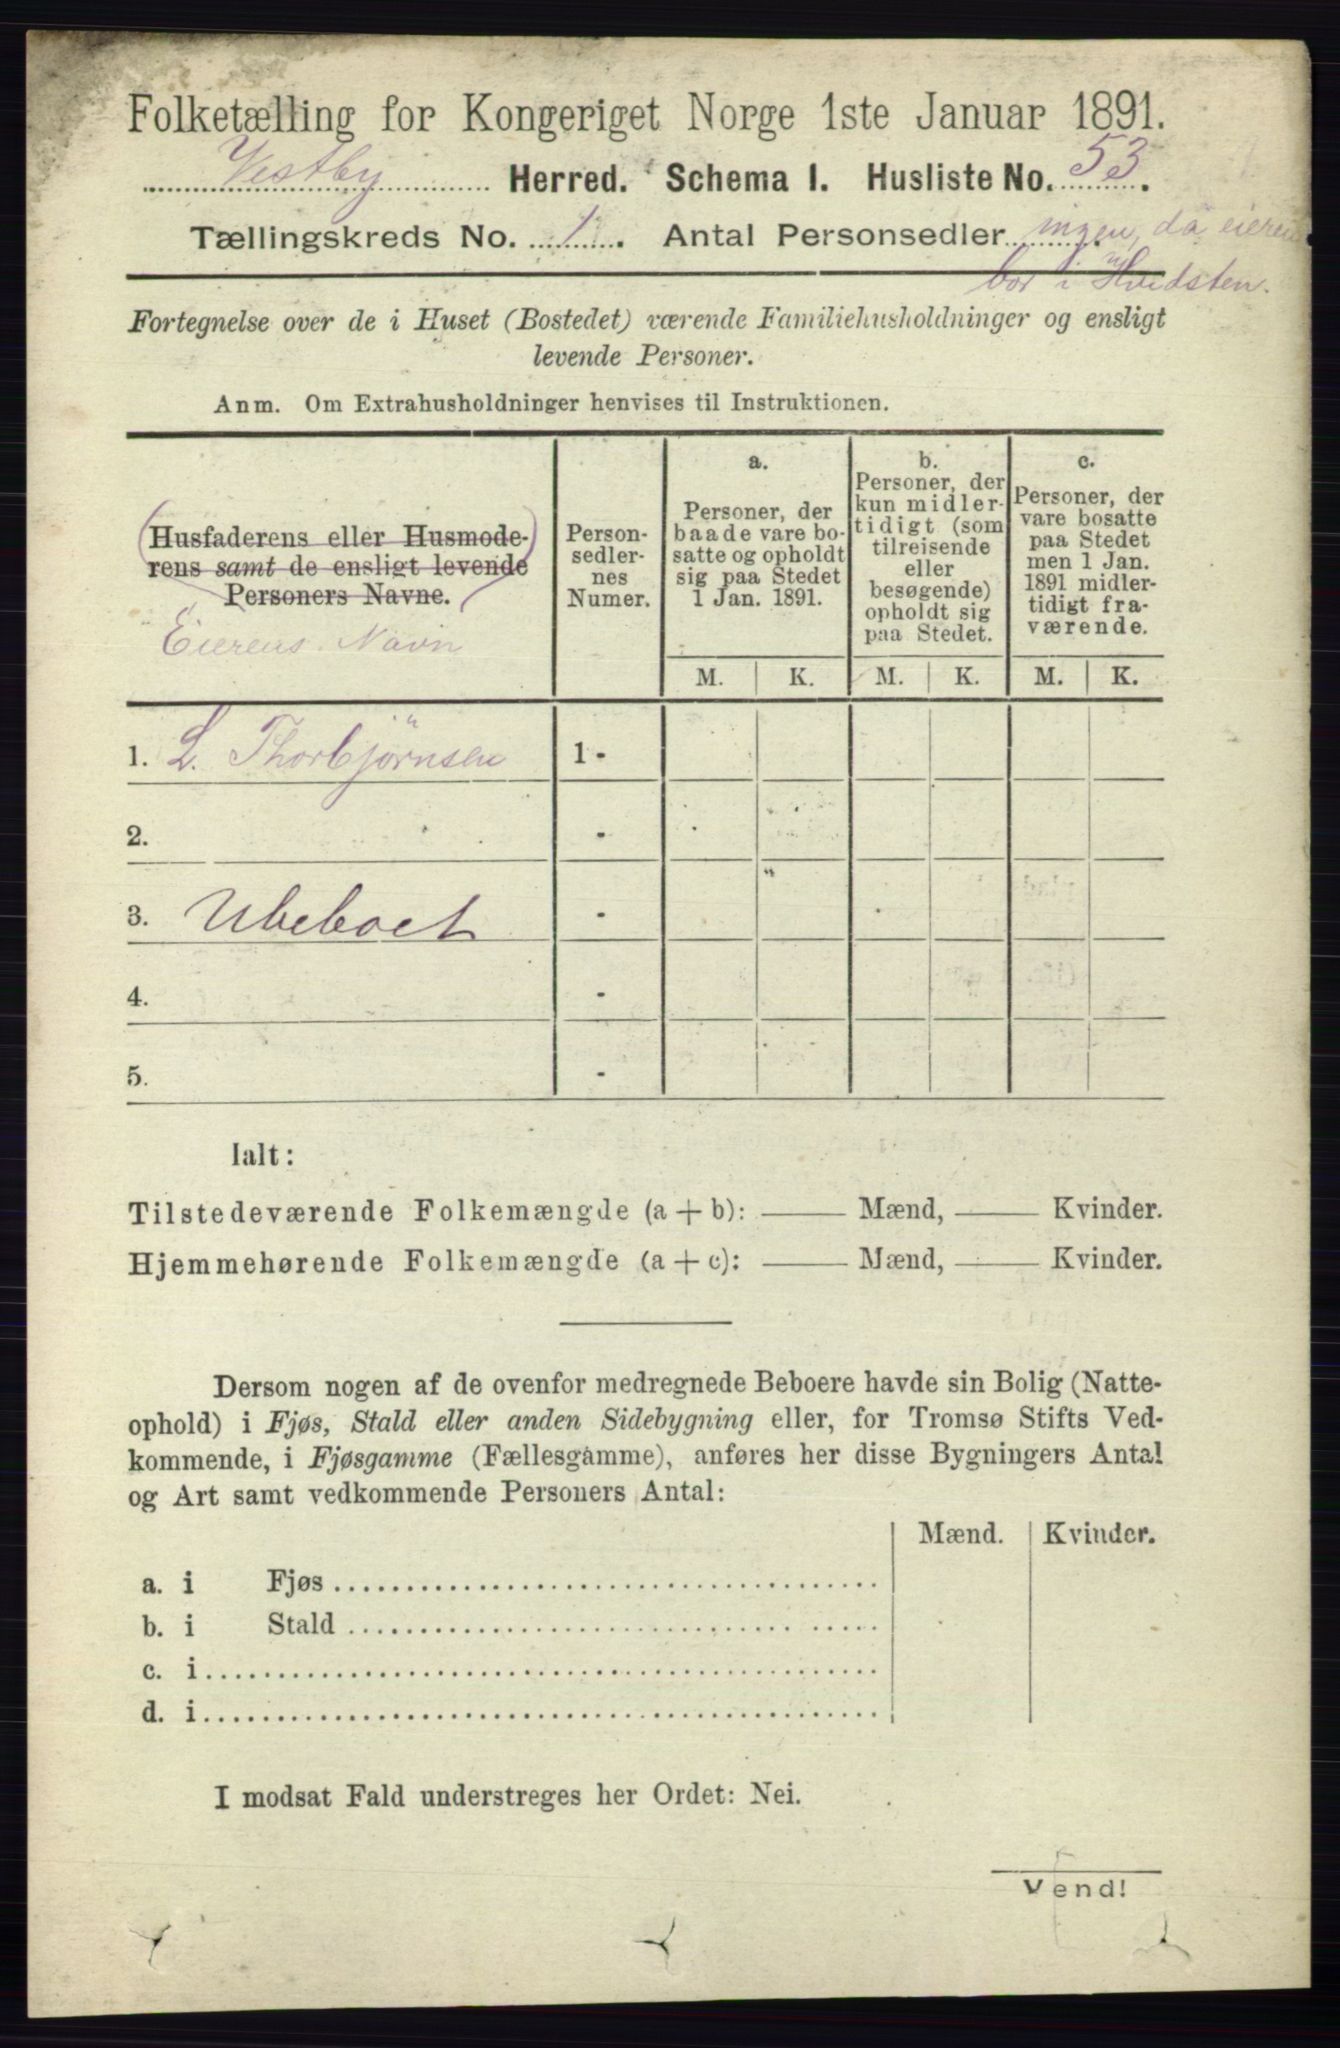 Folketælling for Kongeriget Norge 1ste Januar 1891.
Vestby Herred. Schema I. Husliste No. 53.
Tællingskreds No. 1. Antal Personsedler ingen, da eieren
bor i Hvidsten.
Fortegnelse over de i Huset (Bostedet) værende Familiehusholdninger og ensligt
levende Personer.
Anm. Om Extrahusholdninger henvises til Instruktionen.
Husfaderens eller Husmode-
rens samt de ensligt levende
Personers Navne.
Eierens Navn
Person-
sedler-
nes
Numer.
a.
Personer, der
baade vare bo-
satte og opholdt
sig paa Stedet
1 Jan. 1891.
b.
Personer, der
kun midler-
tidigt (som
tilreisende
eller
besøgende)
opholdt sig
paa Stedet.
c.
Personer, der
vare bosatte
paa Stedet
men 1 Jan.
1891 midler-
tidigt fra-
værende.
M. K. M. K. M. K.
1. L. Thorbjörnsen 1 -
2. -
3. Ubeboet -
4. -
5. -
Ialt:
Tilstedeværende Folkemængde (a + b): —— Mænd, —— Kvinder.
Hjemmehørende Folkemængde (a + c): —— Mænd, —— Kvinder.
Dersom nogen af de ovenfor medregnede Beboere havde sin Bolig (Natte-
ophold) i Fjøs, Stald eller anden Sidebygning eller, for Tromsø Stifts Ved-
kommende, i Fjøsgamme (Fællesgamme), anføres her disse Bygningers Antal
og Art samt vedkommende Personers Antal:
Mænd. Kvinder.
a. i Fjøs
b. i Stald
c. i
d. i
I modsat Fald understreges her Ordet: Nei.
Vend!